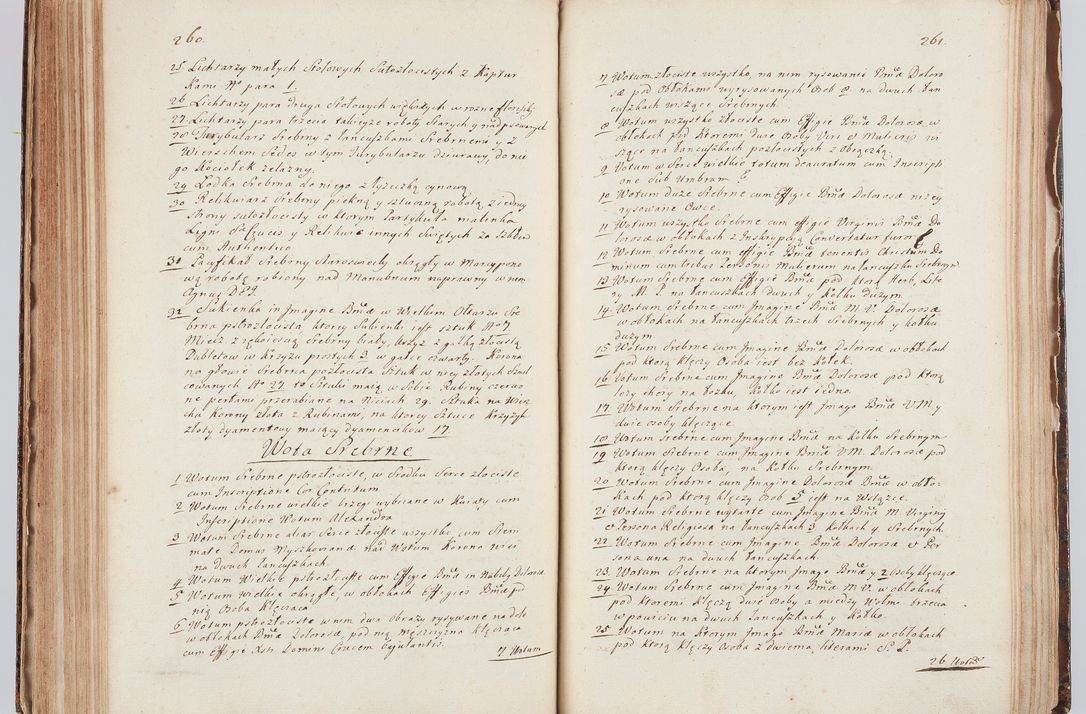 260.
25 Lichtarzy małych Stołowych Sutozłocistych z Kaptur
kami No para 1.
26. Lichtarzy para druga Stołowych w rozne floresiki
27. Lichtarzy para trzecia takieyże roboty Starych y nadpsowanych
28 Turybularz Srebrny z Łancuszkami Srebrnemi y z
Wierzchem Sedes w tym Turybularzu dziurawy do nie
go Kociołek żelazny.
29. Łodka Srebrna do niego z łyżeczką cynową
30 Relikwiarz Srebrny piękną y sztuczną robotą z iedney
strony sutozłocisty w ktorym Partykuła malinka
Ligni S. Crucis y Relikwie innych Swiętych za Szkłem
cum Authentico
31 Pacyfikał Srebrny Staroswiecki okrągły w Marcypano
wą robotę robiony nad Manubrium naprawny w nim
Agnus Dei
32 Sukienka in Imagine Bmæ w Wielkim Ołtarzu Sre
brna pstrozłocista ktorey Sukienki iest sztuk No 7
Miecz z rękoieścią Srebrny biały, Krzyż z gałką złocistą
Dubletow w Krzyżu prostych 3. w gałce czwarty. Korona
na głowie Srebrna pozłocista Sztuk w niey złotych Szmel
cowanych No 27 te Sztuki maią w Sobie Rubiny czerwo
ne perłami przerabiane na Niciach 29. Sztuka na Wierz
chu Korony złota z Rubinami, na ktorey Sztuce Krzyżyk
złoty dyamentowy maiący dyamencikow 17.
Wota Srebrne
1 Wotum Srebrne pstrozłociste, w Srodku Serce złociste
cum Inscriptione Cor Contritum
2 Wotum Srebrne wielkie brzegi wybiiane w Kwiaty cum
Inscriptione Wotum Alexandra
3 Wotum Srebrne alias Serce złociste wszystko, cum Stem
mate Domus Myszkoviana Nad Wotum Korona wisi
na dwuch Łancuszkach
4 Wotum Wielkie pstrozłociste cum Effigie Bmæ in Dolorosa
5 Wotum wielkie okrągłe, w obłokach Effigies Bmæ pod
nią Osoba klęcząca
6 Wotum pstrozłociste w nim dwa Obrazy rysywane na
w obłokach Bmæ Dolorosæ, pod nią Męszczyzna klęcząca
cum Effigie Xsti Domini Crucem Bajulantis.
7 Wotum
261.
7 Wotum złociste wszystko, na nim rysowanie Bmæ Doloro
sæ pod obłokami wyrysowanych Osob 8. na dwuch Łan
cuszkach wiszące Srebrnych
8 Wotum wszystko złociste cum Effigie Bmæ Dolorosæ w
obłokach pod ktoremi dwie Osoby Viri et Mulieris wi
szące na Łancuszkach pozłocistych z Obrączką.
9 Votum w Serce wielkie totum deauratum cum Inscripti
one Sub Umbram
10 Wotum duże Srebrne cum Effigie Bmæ Dolorosæ niżey
rysowane Owce.
11 Wotum wszystko Srebrne cum effigie Virginis Bmæ Do
lorosæ w obłokach z Inskrypcyą Convertatur furor
12 Wotum Srebrne cum effigie Bmæ tenentis Christum Do
minum cum tribus Personis Mulierum na Łancuszku Srebrnym
13 Wotum Srebrne cum Effigie Bmæ pod ktorą Herb, Lite
ry M. P. na Łancuszkach dwuch y Kołku dużym
14. Wotum Srebrne cum Imagine Bmæ M. V. Dolorosæ
w obłokach na Łancuszkach trzech Srebrnych y kołku
dużym
15 Wotum Srebrne cum Imagine Bmæ Dolorosæ w obłokach
pod ktorą klęczy Osoba iest bez Kołek.
16 Votum Srebrne cum Imagine Bmæ Dolorosæ pod ktorą
leży chory na łożku, Kołko iest iedno.
17 Wotum Srebrne na ktorym iest Imago Bmæ V. M. y
dwie osoby klęczące
18 Wotum Srebrne cum Imagine Bmæ na Kołku Srebrnym
19 Wotum Srebrne cum Imagine Bmæ V.M. Dolorosæ pod
ktorą klęczy Osoba, na Kołku Srebrnym.
20 Wotum Srebrne cum Imagine Dolorosæ Bmæ w obło-
kach pod ktorą klęczy Osob 5 iest na Wstążce.
21 Wotum Srebrne wytarte cum Imagine Bmæ M. Virginis
et Persona Religiosa na Łancuszkach 3. kołkach 4 Srebrnych
22 Wotum Srebrne cum Imagine Bmæ Dolorosæ et Per
sona una na dwuch Łancuszkach.
23. Wotum Srebrne na ktorym Imago Bmæ y 2 osoby klęczące
24. Wotum Srebrne cum Imagine Bmæ M. V. w obłokach
pod ktoremi klęczą dwie Osoby a miedzy Niemi Dziecie
w powiciu na dwuch Łancuszkach y Kołko.
25 Wotum na Ktorym Imago Bmæ Mariæ w obłokach
pod ktorą klęczy Osoba z dwiema, literami S. P.
26 Wotum